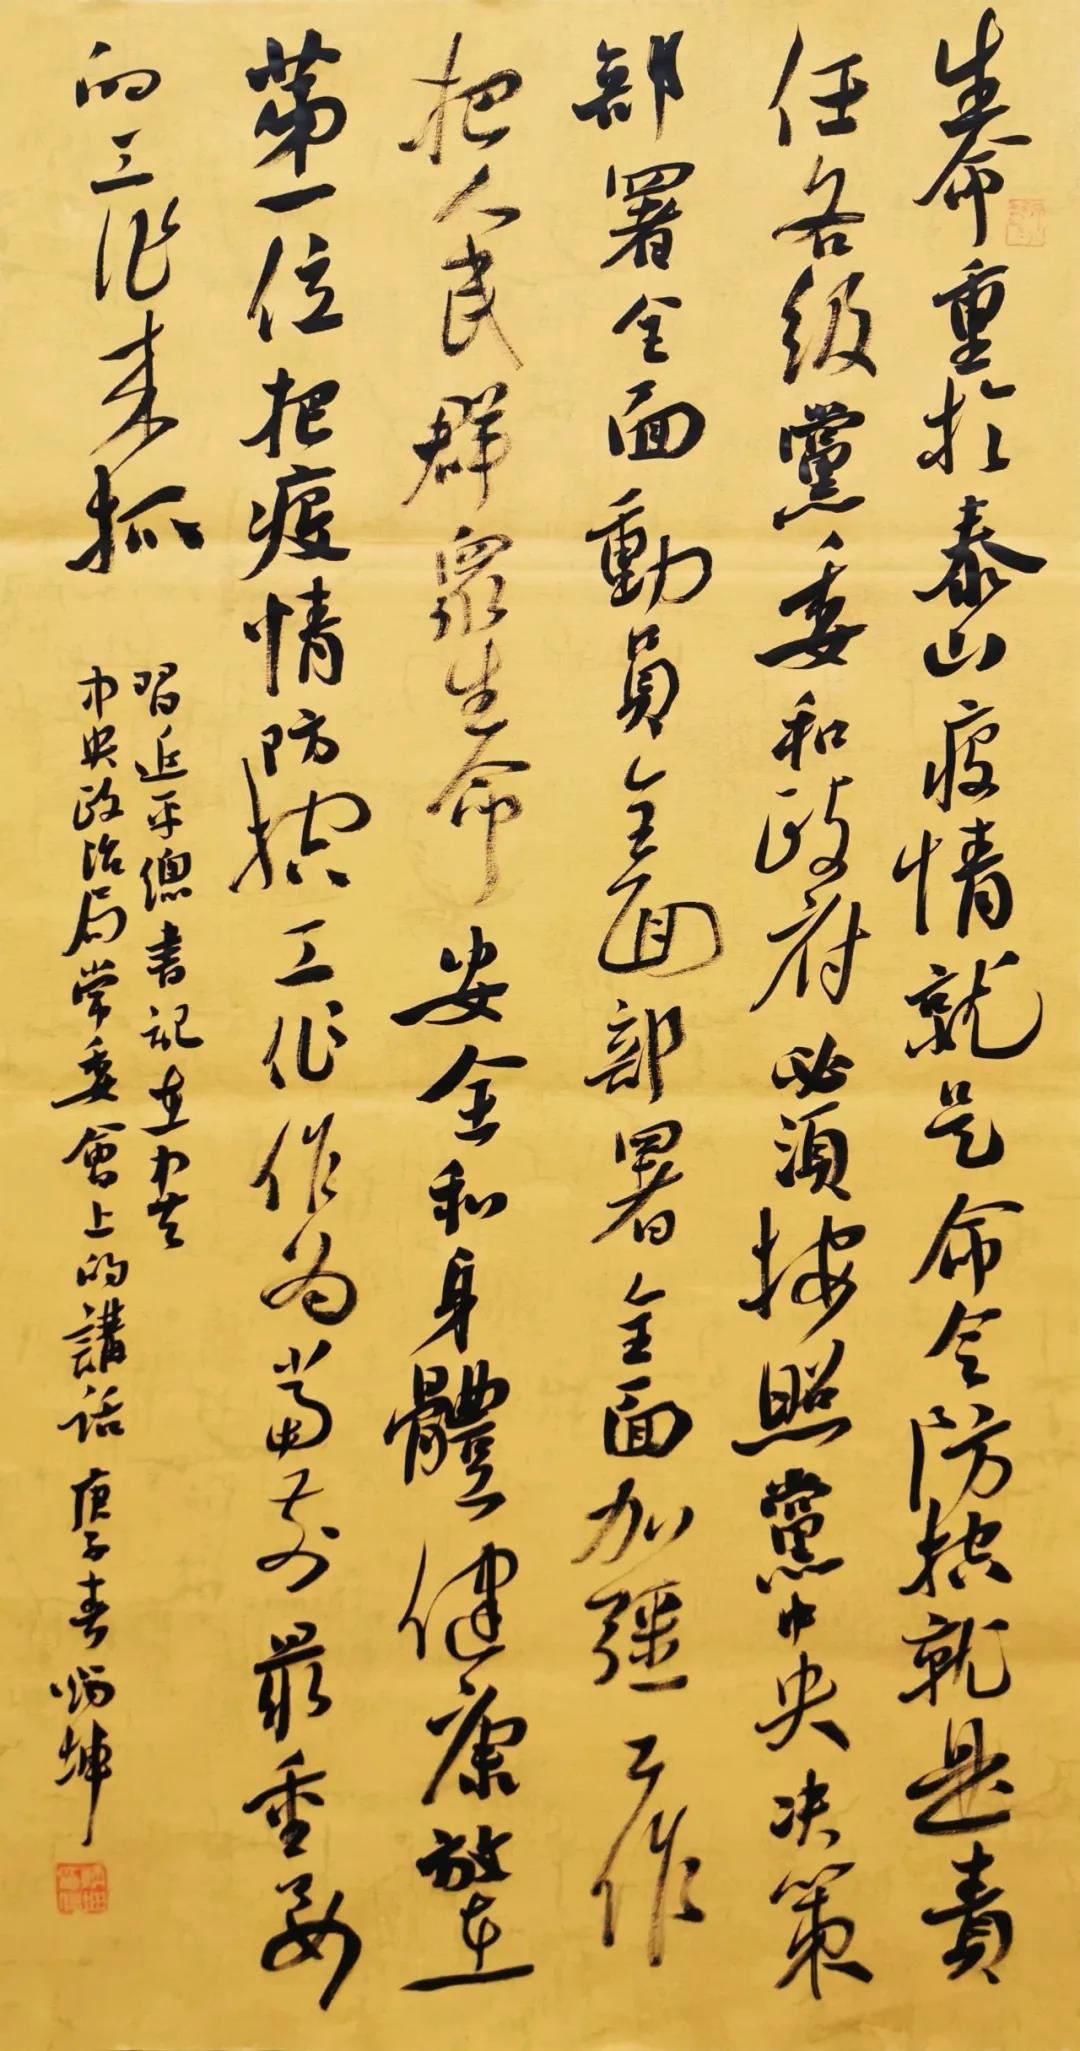 生命重於泰山疫情就是命令防控就是責
任各級黨委和政府必須按照黨中央决策
部署全面動員全面部署全面加强工作
把人民群眾生命安全和身體健康放在
第一位把疫情防控工作作為當前最重要
的工作来抓
習近平總書記在中央
中央政治局常委會上的講話 庚子春 炳坤